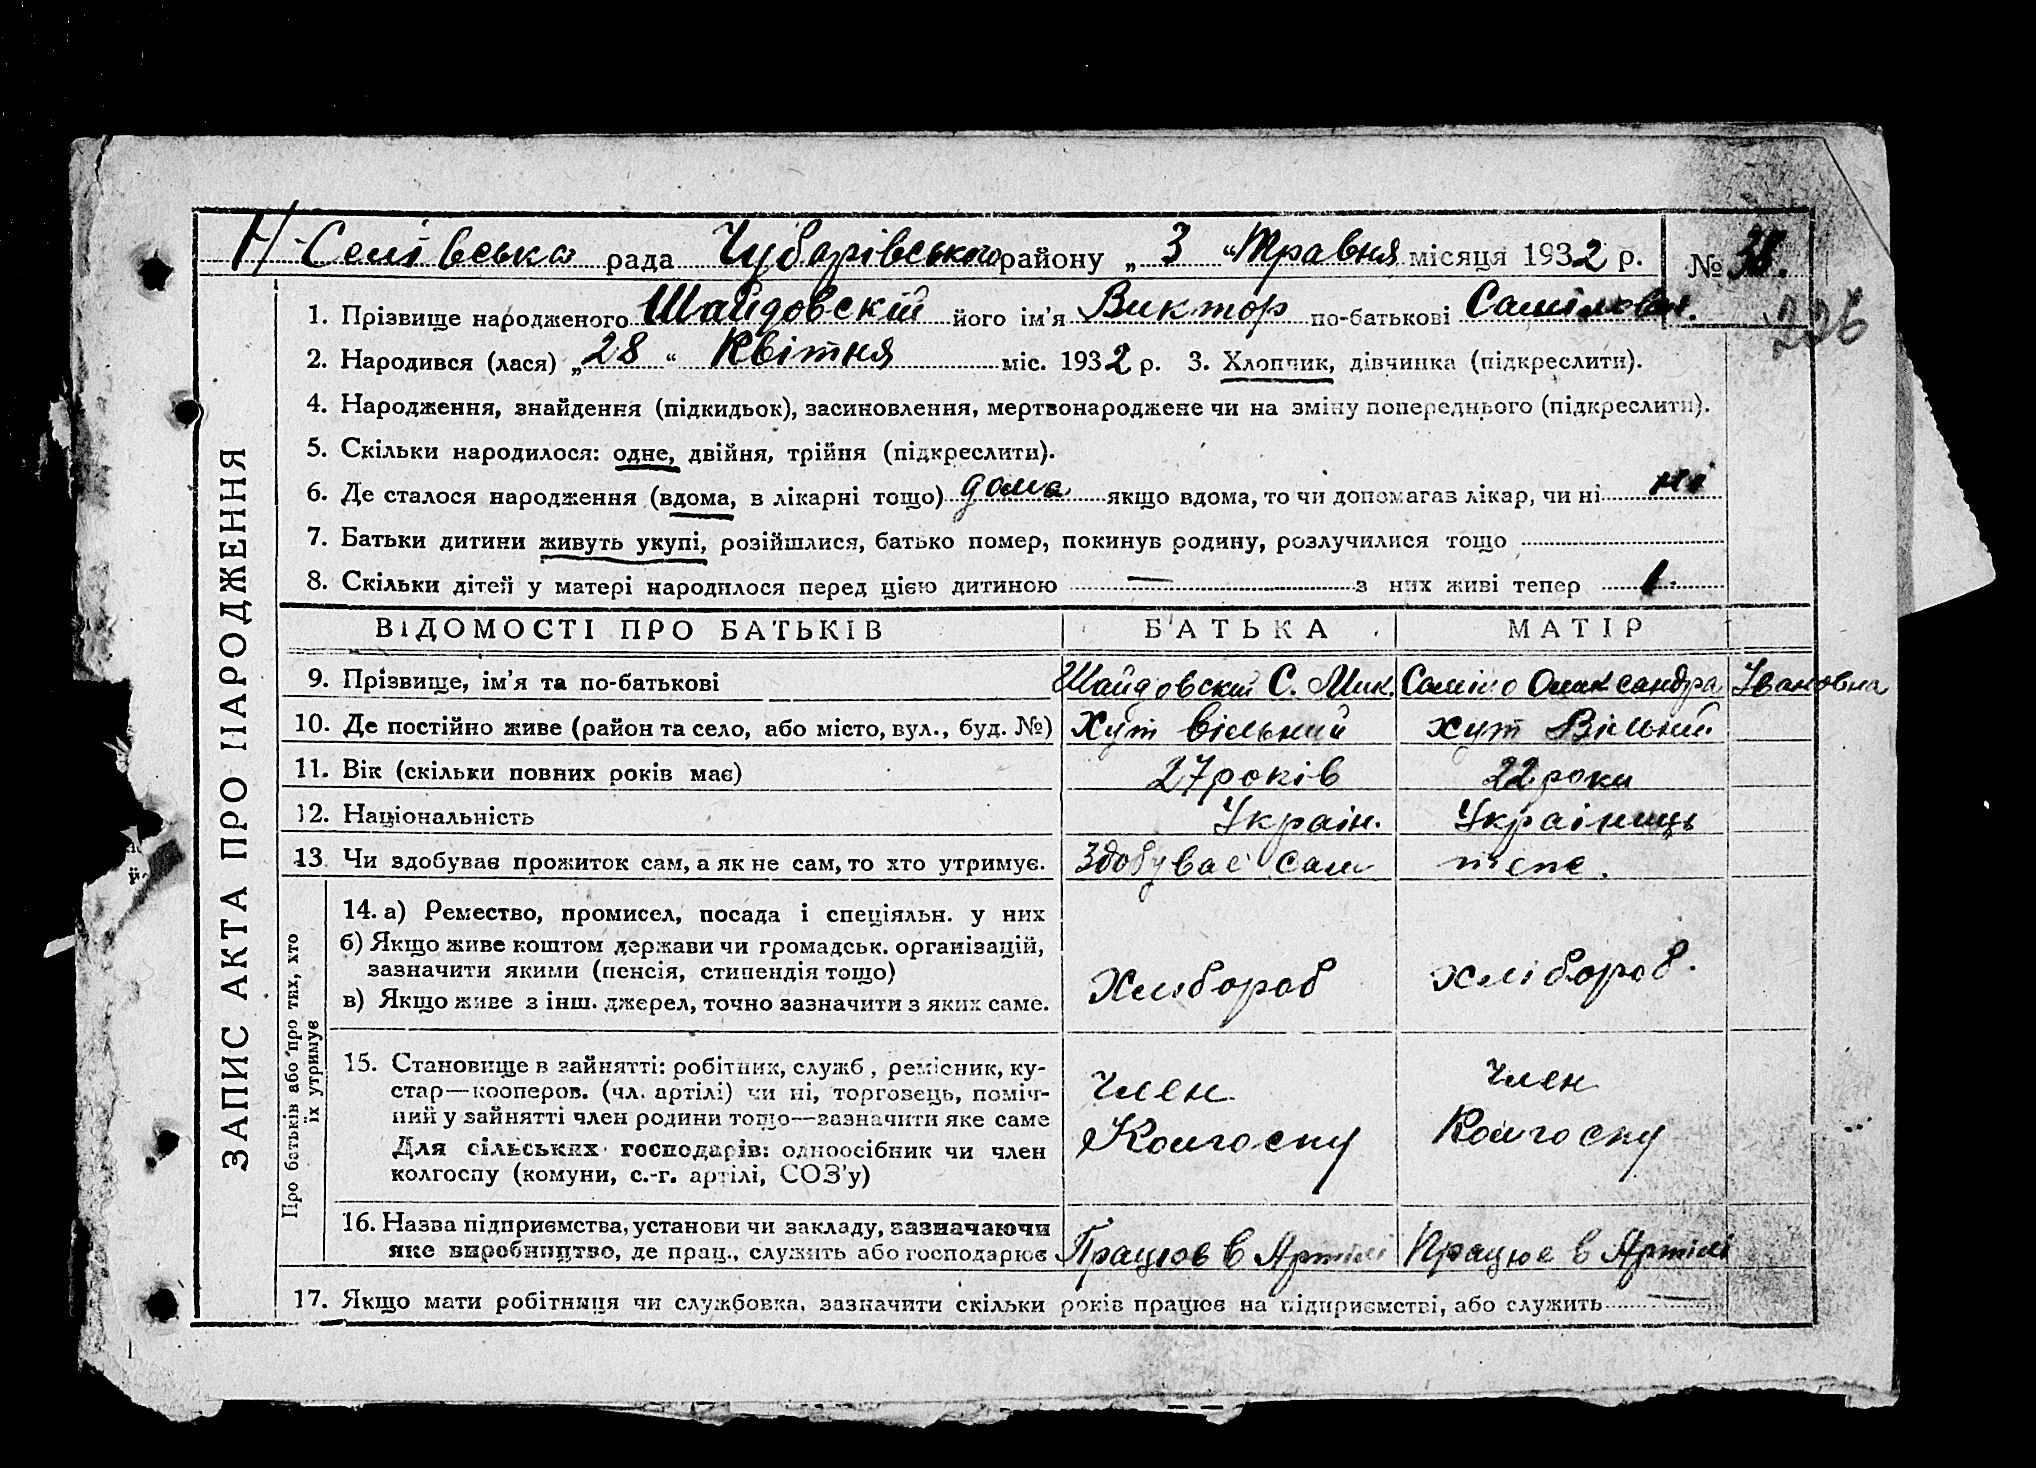 Н-Селівська рада Чубарівського району „ 3 “ Травня місяця 1932 р. № 38.
226
1. Прізвище народженого Шайдовскій його ім’я Виктор по-батькові
2. Народився (лася) „ 28 “ Квітня міс. 1932 р. 3. Хлопчик, дівчинка (підкреслити).
4. Народження, знайдення (підкидьок), засиновлення, мертвонароджене чи на зміну попереднього (підкреслити).
5. Скільки народилося: одне, двійня, трійня (підкреслити).
6. Де сталося народження (вдома, в лікарні тощо) дома якщо вдома, то чи допомагав лікар, чи ні ні
7. Батьки дитини живуть укупі, розійшлися, батько помер, покинув родину, розлучилися тощо
8. Скільки дітей у матері народилося перед цією дитиною — з них живі тепер 1.
ЗАПИС АКТА ПРО НАРОДЖЕННЯ
ВІДОМОСТІ ПРО БАТЬКІВ БАТЬКА МАТІР
9. Прізвище, ім’я та по-батькові Шайдовскій С. Мик. Самійло Олександра Івановна
10. Де постійно живе (район та село, або місто, вул., буд. №) Хут Вільний хут Вільний
11. Вік (скільки повних років має) 27 років 22 роки
12. Національність Україн. Україниць
13 Чи здобуває прожиток сам, а як не сам, то хто утримує. Здобуває сам теж.
Про батьків або про тих, хто
їх утримує
14. а) Ремество, промисел, посада і спеціяльн. у них
б) Якщо живе коштом держави чи громадськ. організацій,
зазначити якими (пенсія, стипендія тощо)
в) Якщо живе з інш. джерел, точно зазначити з яких саме.
Хлибороб хлібороб.
15. Становище в зайнятті: робітник, служб, ремісник, ку-
стар—кооперов. (чл. артілі) чи ні, торговець, поміч-
ний у зайнятті член родини тощо—зазначити яке саме
Для сільських господарів: одноосібник чи член
колгоспу (комуни, с.-г. артілі, СОЗ’у)
Член Член
Колгоспу Колгоспу
16. Назва підприємства, установи чи закладу, зазначаючи
яке виробництво, де прац., служить або господарює Працює в Артілі Працює в Артілі
17. Якщо мати робітниця чи службовка, зазначити скільки років працює на підприємстві, або служить —